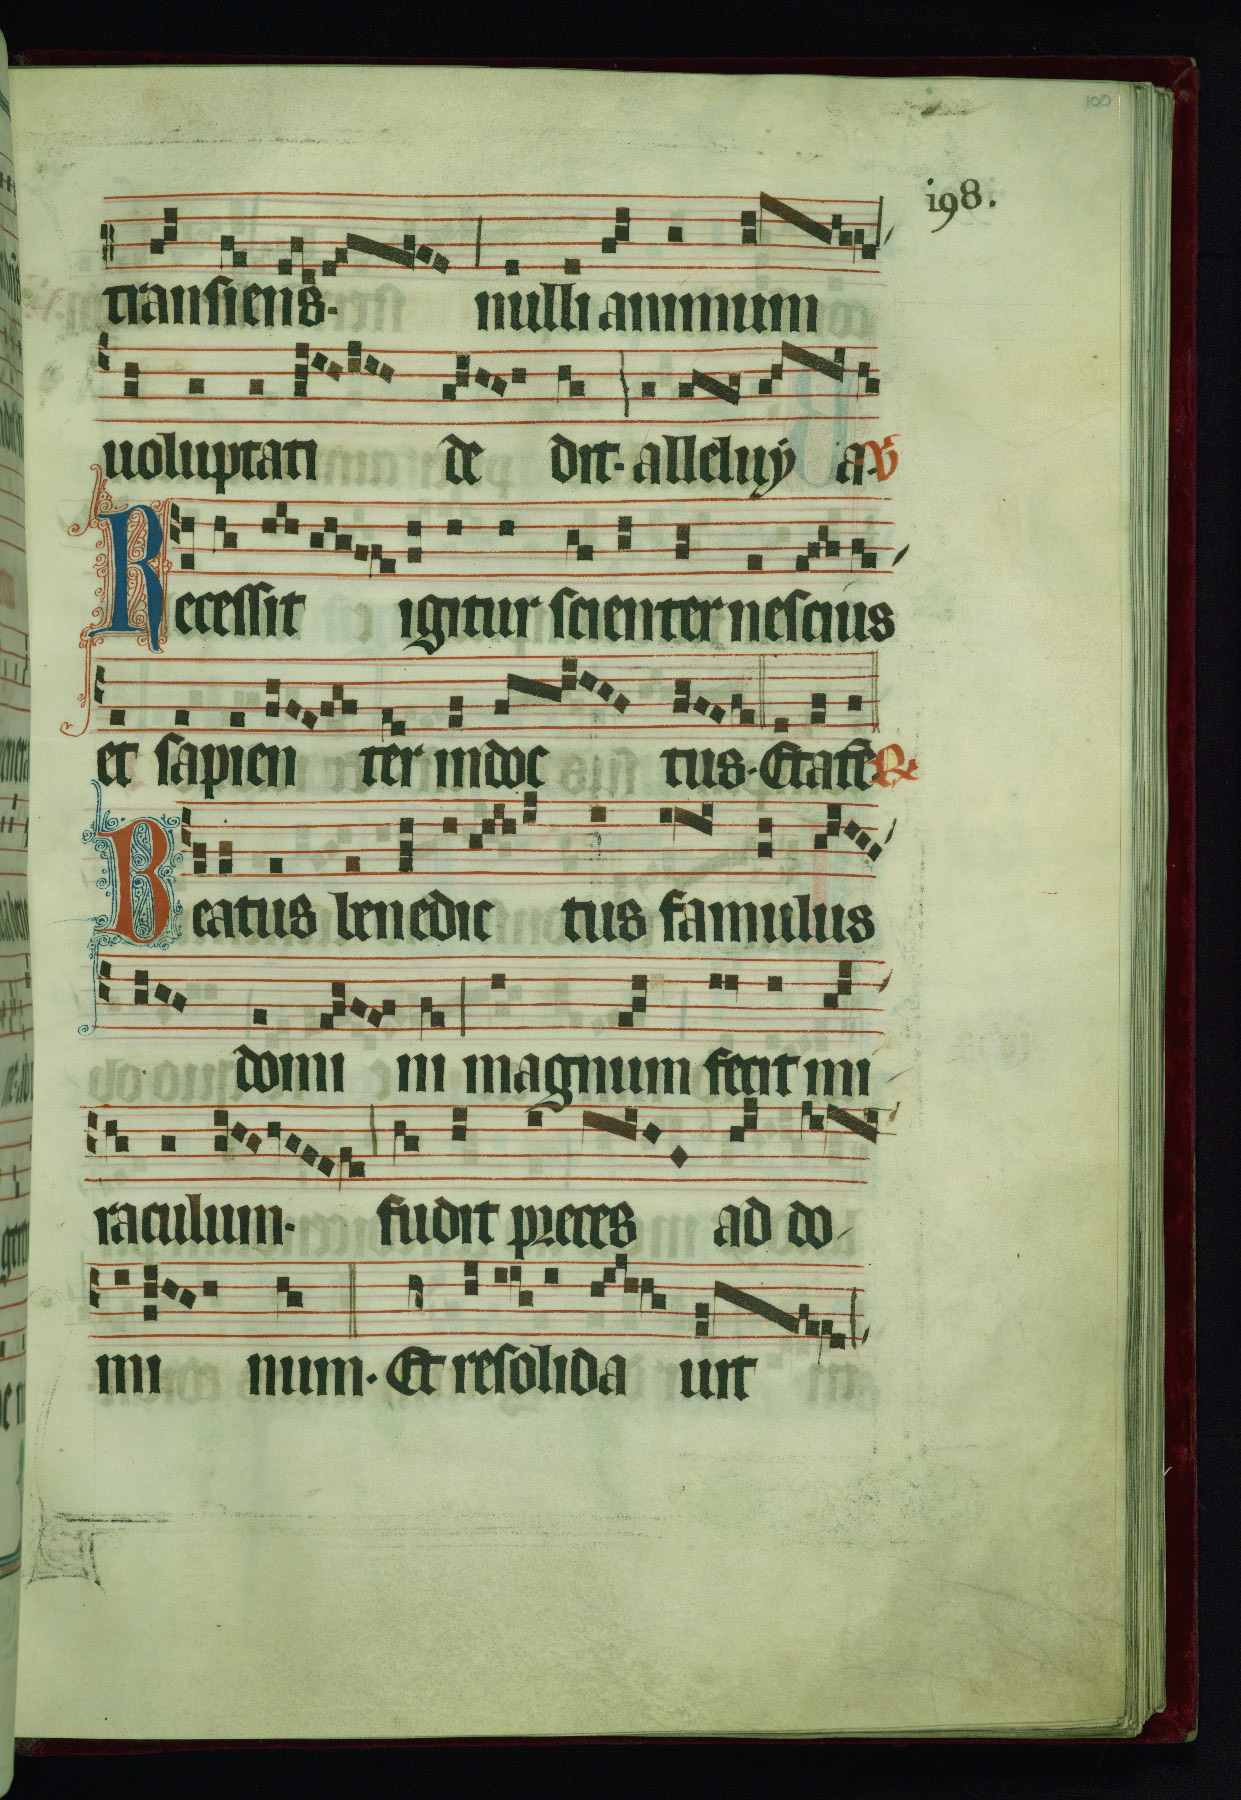 100
i98.
transiens. nulli animum
uoluptati de dit. alleluy a. V
Recessit igitur scienter nescius
et sapien ter indoc tus. Etatē R
Beatus benedic tus famulus
domi ni magnum fecit mi
raculum. fudit preces ad do
mi num. Et resolida uit